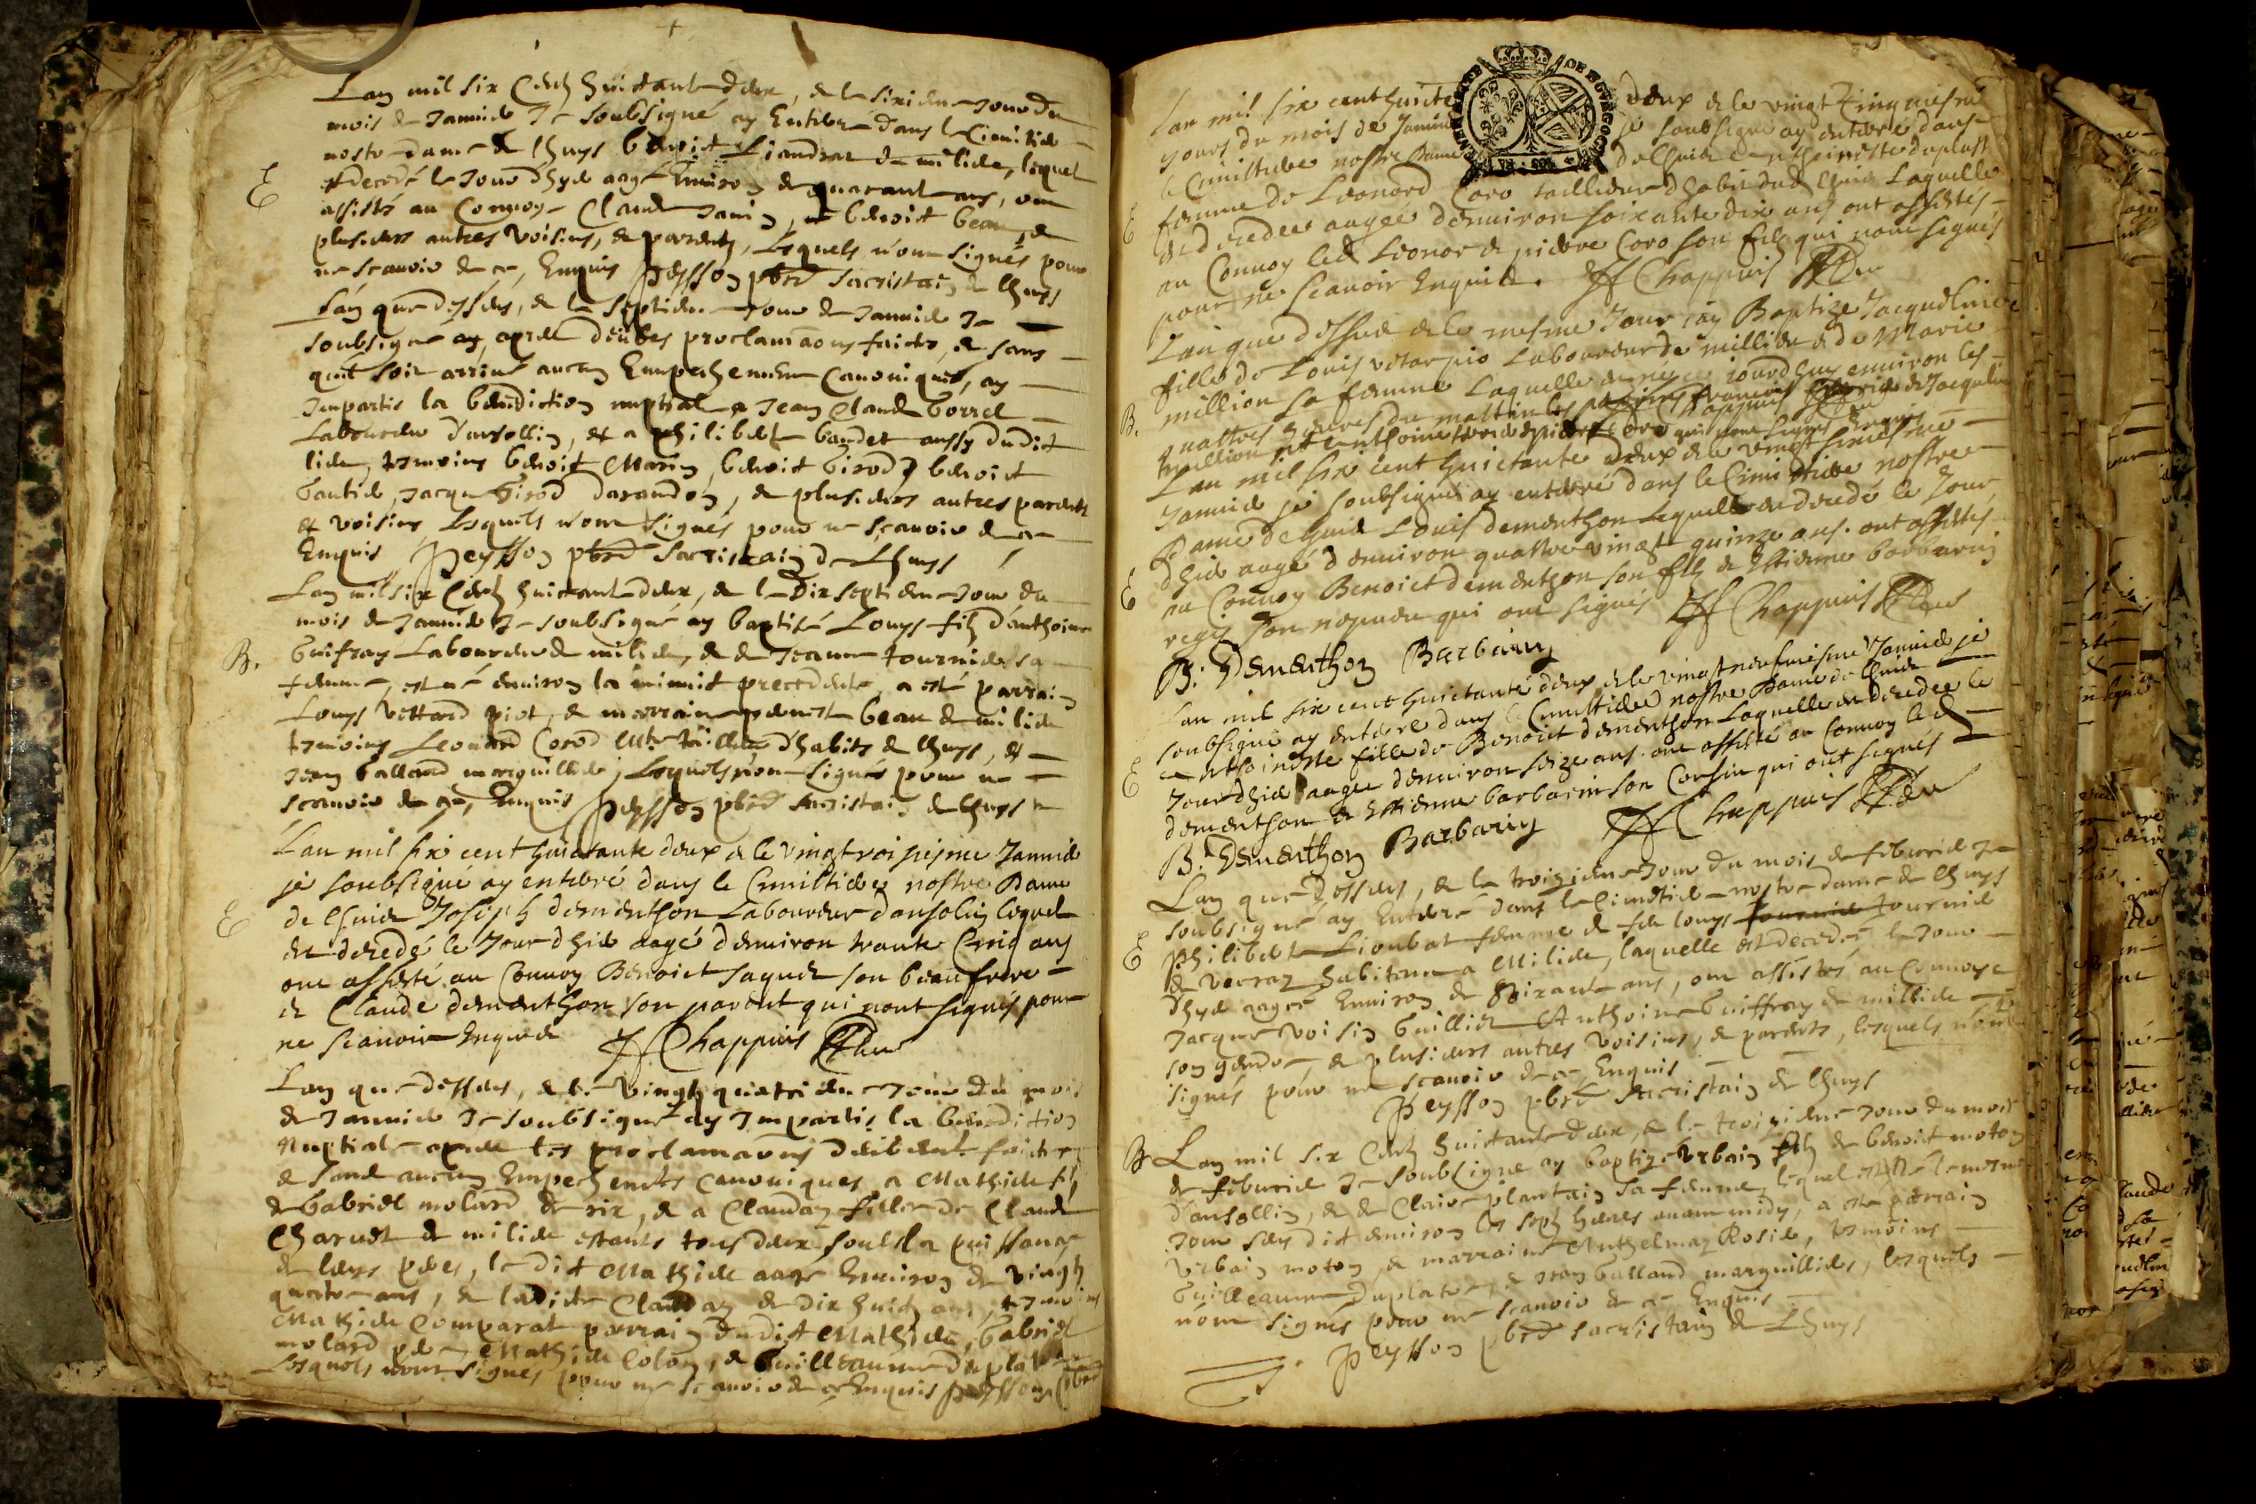 Lan mil six Centz huictante deux, & le sixiesme Jour du
mois de Janvier Je soubsigné ay Enterre dans le Cimitiere
nostre dame de lhuys benoit Liaudrat de miliere, lequel
E est decedé le Jour dhyer aagé Environ de quarante ans, ont
assisté au Convoy Claude Janin, & benoist beau, &
plusieurs autres voisins, & parents, lesquels n'ont signés pour
ne scavoir de ce, Enquis Peysson pbre Sacristain de Lhuys
Lan que dessus, & le septiesme Jour de Janvier Je
soubsigné ay, apres deubes proclamaons faictes, & sans
quil soit arrivé aucun Empechement Canonique, ay
Impartis la benediction nuptiale a Jean Claude Borrel
Laboureur dansollin, et a philiberte baudet aussy dudict
lieu, tesmoins benoist Marin, benoit Girod, benoist
Gautier, Jacque Girod darandon, & plusieurs autres parents
et voisins, Lesquels n'ont signés pour ne scavoir de ce
Enquis Peysson pbre Sacristain de Lhuys
Lan mil six Centz huictante deux, & le Dix septiesme Jour du
mois de Janvier Je soubsigné ay baptisé Louys filz d'anthoine
B. Guifray Laboureur de miliere, & de Jeanne tournier sa
femme, est né environ la minuit precedente, a esté parrain
Louys Vettard piot, & marraine benoiste beau de miliere
tesmoins Leonard Corod Mtre tailleur d'habits de lhuys, et
Jean balland marguillier, Lesquels n'ont signés pour ne
scavoir de ce, Enquis Peysson pbre Sacristain de lhuys
Lan mil six cent huictante deux & le vingtroisiesme Janvier
je soubsigné ay enterré dans le Cimiltiere nostre Dame
de lhuis Joseph dementhon Laboureur dansolin lequel
E est decedé le Jour dhier aagé denviron trante Cinq ans
ont assisté au Convoy Benoict saquet son beau frere
et Claude dementhon son parent qui n'ont signés pour
ne scavoir Enquis Chappuis
Lan que dessus, & le Vingt quatriesme Jour du mois
de Janvier Je soubsigné ay Impartis la benediction
Nuptiale apres les proclamaons deubement faictes
& sans aucun Empechements Canoniques a Mathieu filz
de Gabriel molard de rix, & a Clauday fille de Claude
Charvet de miliere estants tous deux soubs la puissance
de leurs peres, le dit Mathieu aagé Environ de Vingt
quatre ans, & ladite Clauday de Dix huict ans, tesmoins
Mathieu Comparat parrain dudit Mathieu, Gabriel
molard pere, Mathieu Colon, & Guilleaume duplatre
Lesquels n'ont signés pour ne scavoir de ce Enquis Peysson pbre
GENERALITE DE BOURGOGNE
Lan mil six cent huicte deux & le vingt Cinquiesme
jours du mois de Janvier je soubsigné ay enterré dans
le Cimiltiere nostre Dame de lhuis anthoinette duplast
E femme de Leonard Coro taillieur dhabit dud lhuis Laquelle
est decedee aagée denviron soixante dix ans ont assistés
au Convoy led Leonor & pierre Coro son filz qui n'ont signés
pour ne scavoir Enquis. Chappuis
Lan que dessus & le mesme Jour jay Baptize Jacqueline
fille de Louis vetar pio Laboureur de milliere & de Marie
million sa femme Laquelle est nee ce jourdhuy environ les
B. quattres heures du mattin
Lan mil six cent huictante deux & le vingt sixiesme
Janvier je soubsigné ay enterré dans le Cimiltiere nostre
Dame de lhuis Louis dementhon Lequel est decedé le Jour
E dhier aagé denviron quattre vingt quinze ans. ont assistés
au Convoy Benoict dementhon son filz & Estienne barbarin
son nepveu qui ont signés Chappuis
B. Dementhon Barbarin
Lan mil six cent huictante deux & le vingt neufviesme Janvier je
soubsigné ay enterré dans le Cimiltiere nostre Dame de lhuis
E anthoinette fille de Benoict dementhon Laquelle est decedee le
Jour dhier aagée denviron seize ans. ont assisté au Convoy led
dementhon & Estienne barbarin son Corsin qui ont signés
B. Dementhon Barbarin Chappuis
Lan que dessus, & le troisiesme Jour du mois de febvrier Je
soubsigné ay Enterré dans le Cimetiere nostre dame de lhuys
E philiberte Lioubat femme de feu louys tournier
de verraz habitante a Miliere, laquelle est decedée le Jour
Dhyer aagée Environ de soixante ans, ont assistés au Convoye
Jacque voisin Guillict Anthoine Guiffray de milliere
son gendre & plusieurs autres voisins, & parents, lesquels n'ont
signés pour ne scavoir de ce, Enquis
Peysson pbre Sacristain de Lhuys
B Lan mil six Centz huictante deux, & le troisiesme Jour du mois
de febvrier Je soubsigné ay baptizé Urbain filz de benoit moton
d'ansollin, & de Claire plantain sa femme, lequel est né le mesme
Jour sus dit environ les sept heures avant midy, a esté parrain
Urbain moton, & marraine Anthelmaz Rosier, tesmoins
Guilleaume Duplatre, & Jean balland marguillier, lesquels
n'ont signés pour ne scavoir de ce Enquis
Peysson pbre sacristain de Lhuys